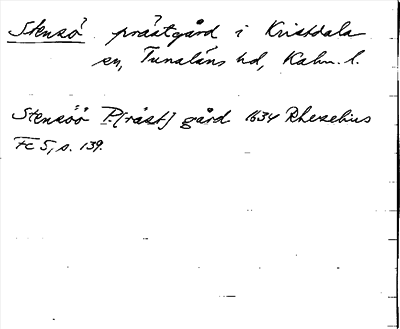 Stensö prästgård i Kristdala
sn, Tunaläns hd, Kalm. l.
Stensöö P[räst]gård 1634 Rhezelius
Fc 5, s. 139.